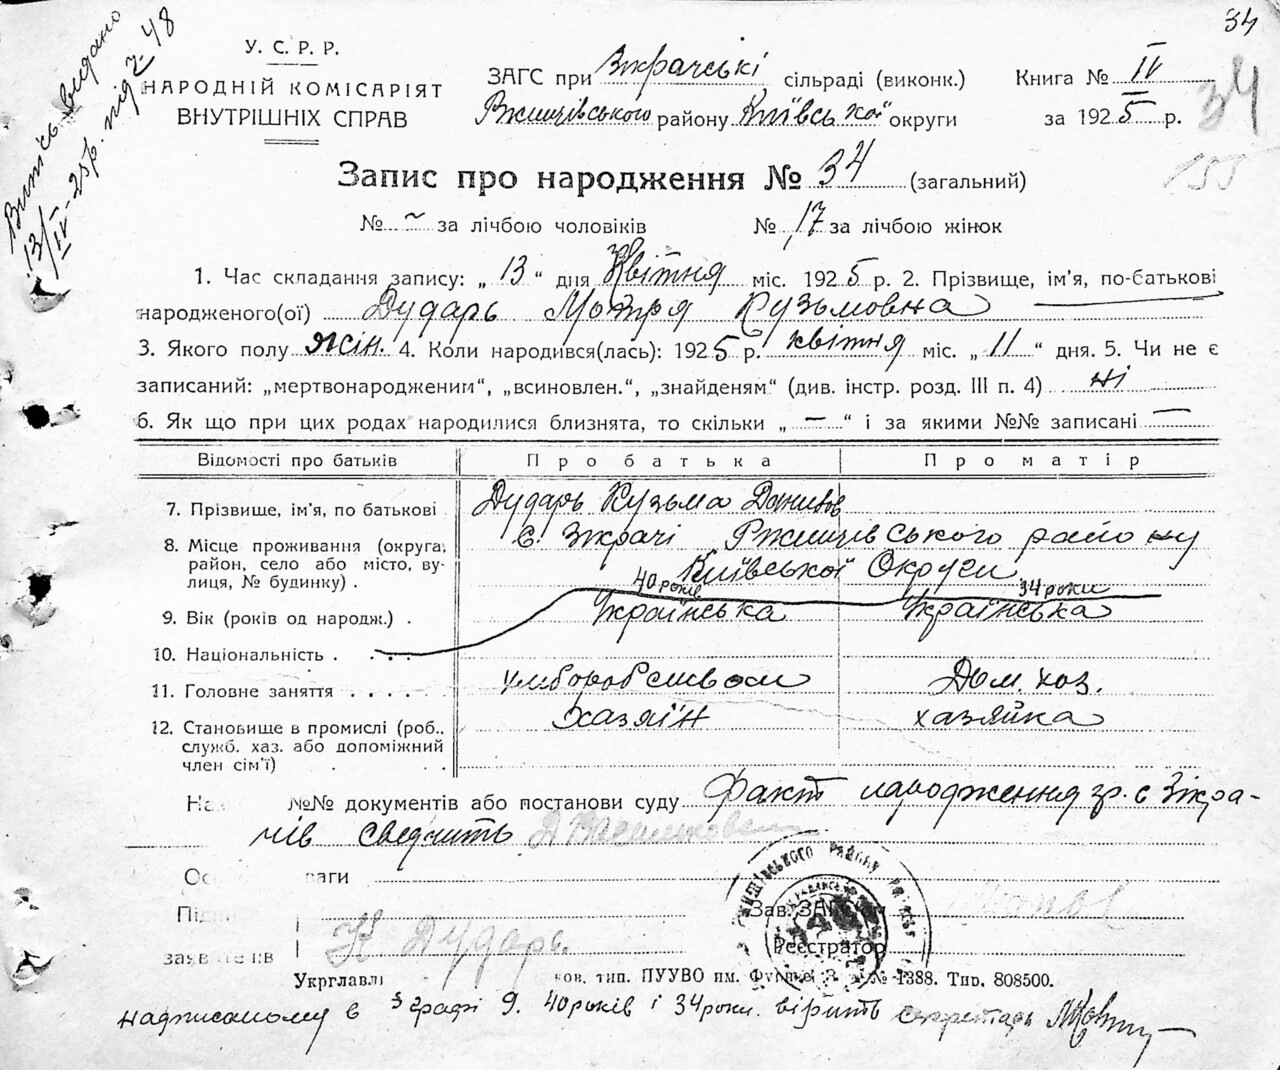 34
Випись видано
13/IV-25р. під № 48
У. С. Р. Р.
НАРОДНІЙ КОМІСАРІЯТ
ВНУТРІШНІХ СПРАВ
ЗАГС при сільраді (виконк.)
Ржищівського району Київської округи
Книга № IV
за 1925 р.
34
155
Запис про народження № 34 (загальний)
№ ~ за лічбою чоловіків № 17 за лічбою жінок
1. Час складання запису: „ 13 “ дня Квітня міс. 1925 р. 2. Прізвище, ім’я, по-батькові
народженого(ої) Дударь Мотря Кузьмовна
3. Якого полу жін. 4. Коли народився(лась): 1925 р. квітня міс. „ 11 “ дня. 5. Чи не є
записаний: „мертвонародженим“, „всиновлен.“, „знайденям“ (див. інстр. розд. III п. 4) ні
6. Як що при цих родах народилися близнята, то скільки „ — “ і за якими №№ записані —
Відомості про батьків Про батька Про матір
7. Прізвище, ім’я, по батькові Дударь Кузьма
8. Місце проживання (округа, район, село або місто, вулиця, № будинку) . с. Зікрачі Ржищівського району
Київської Округи
40 років 34 роки
9. Вік (років од народж.) . Українська Українська
10. Національність . . . .
11. Головне заняття . . . . . Дом. хоз.
12. Становище в промислі (роб., служб. хаз. або допоміжний член сім’ї) . . . хазяїн хазяйка
На №№ документів або постанови суду Факт народження гр. с Зікра-
чів свєдчить
Ос аги
Підп Зав. ЗАГСом
К Дударь Реєстратор
заяв ів
Укрглавлі ков. тип. ПУУВО ім. Фрунзе З № 1388. Тир. 808500.
надписаному в графі 9. 40 років і 34 роки. вірить секретарь